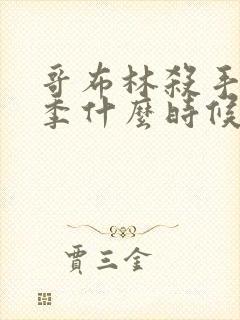 哥布林殺手
季什麼時候
賈三金